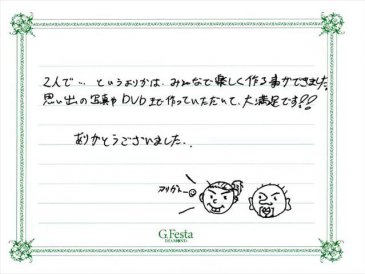 2人で… というよりかは、みんなで楽しく作る事ができました。
思い出の写真やDVDまで作っていただいて、大満足です!!
ありがとうございました、、
アリガトー
G.Festa
DIAMOND